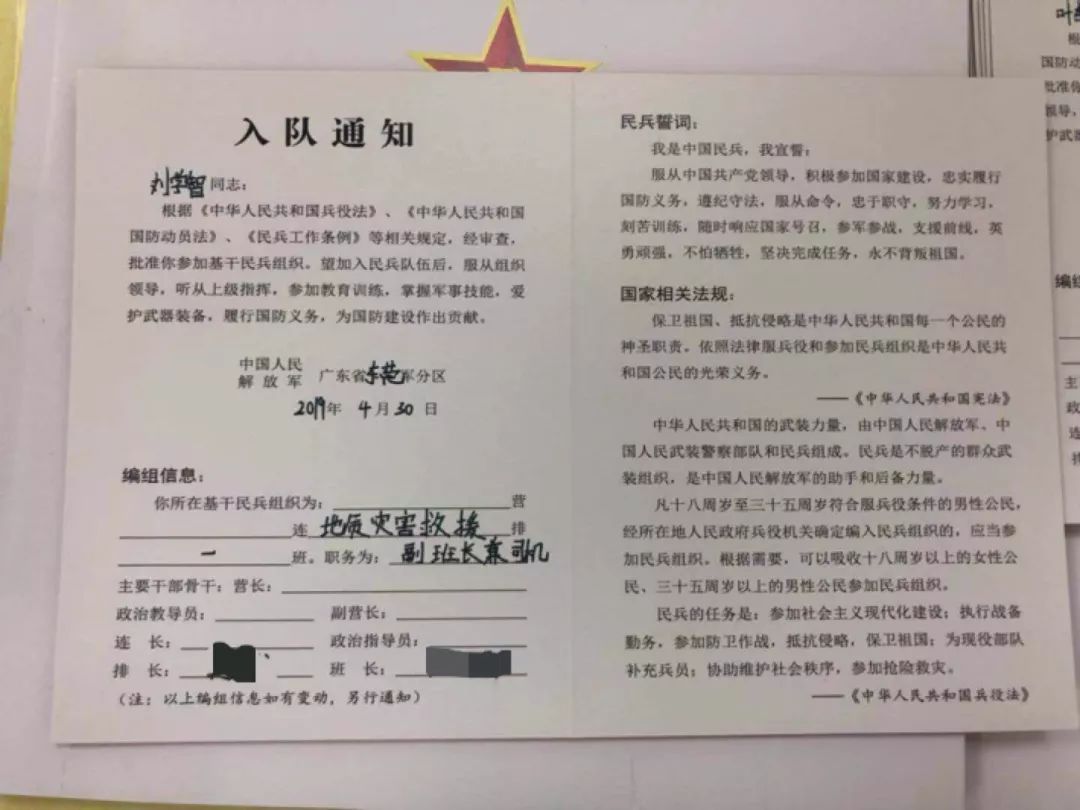 入队通知
刘学智同志：
根据《中华人民共和国兵役法》、《中华人民共和国
国防动员法》、《民兵工作条例》等相关规定，经审查，
批准你参加基干民兵组织。望加入民兵队伍后，服从组织
领导，听从上级指挥，参加教育训练，掌握军事技能，爱
护武器装备，履行国防义务，为国防建设作出贡献。
中国人民
解放军 广东省东莞军分区
2019年 4月30日
编组信息：
你所在基干民兵组织为：营
连 地质灾害救援 排
一 班。职务为：副班长兼司机
主要干部骨干：营长：
政治教导员： 副营长：
连 长： 政治指导员：
排 长： 班 长：
（注：以上编组信息如有变动，另行通知）
民兵誓词：
我是中国民兵，我宣誓：
服从中国共产党领导，积极参加国家建设，忠实履行
国防义务，遵纪守法，服从命令，忠于职守，努力学习，
刻苦训练，随时响应国家号召，参军参战，支援前线，英
勇顽强，不怕牺牲，坚决完成任务，永不背叛祖国。
国家相关法规：
保卫祖国、抵抗侵略是中华人民共和国每一个公民的
神圣职责。依照法律服兵役和参加民兵组织是中华人民共
和国公民的光荣义务。
——《中华人民共和国宪法》
中华人民共和国的武装力量，由中国人民解放军、中
国人民武装警察部队和民兵组成。民兵是不脱产的群众武
装组织，是中国人民解放军的助手和后备力量。
凡十八周岁至三十五周岁符合服兵役条件的男性公民，
经所在地人民政府兵役机关确定编入民兵组织的，应当参
加民兵组织。根据需要，可以吸收十八周岁以上的女性公
民、三十五周岁以上的男性公民参加民兵组织。
民兵的任务是：参加社会主义现代化建设；执行战备
勤务，参加防卫作战，抵抗侵略，保卫祖国；为现役部队
补充兵员；协助维护社会秩序，参加抢险救灾。
——《中华人民共和国兵役法》
叶
根
国防动
批准你
领导，
护武器
编组
主
政
连
排